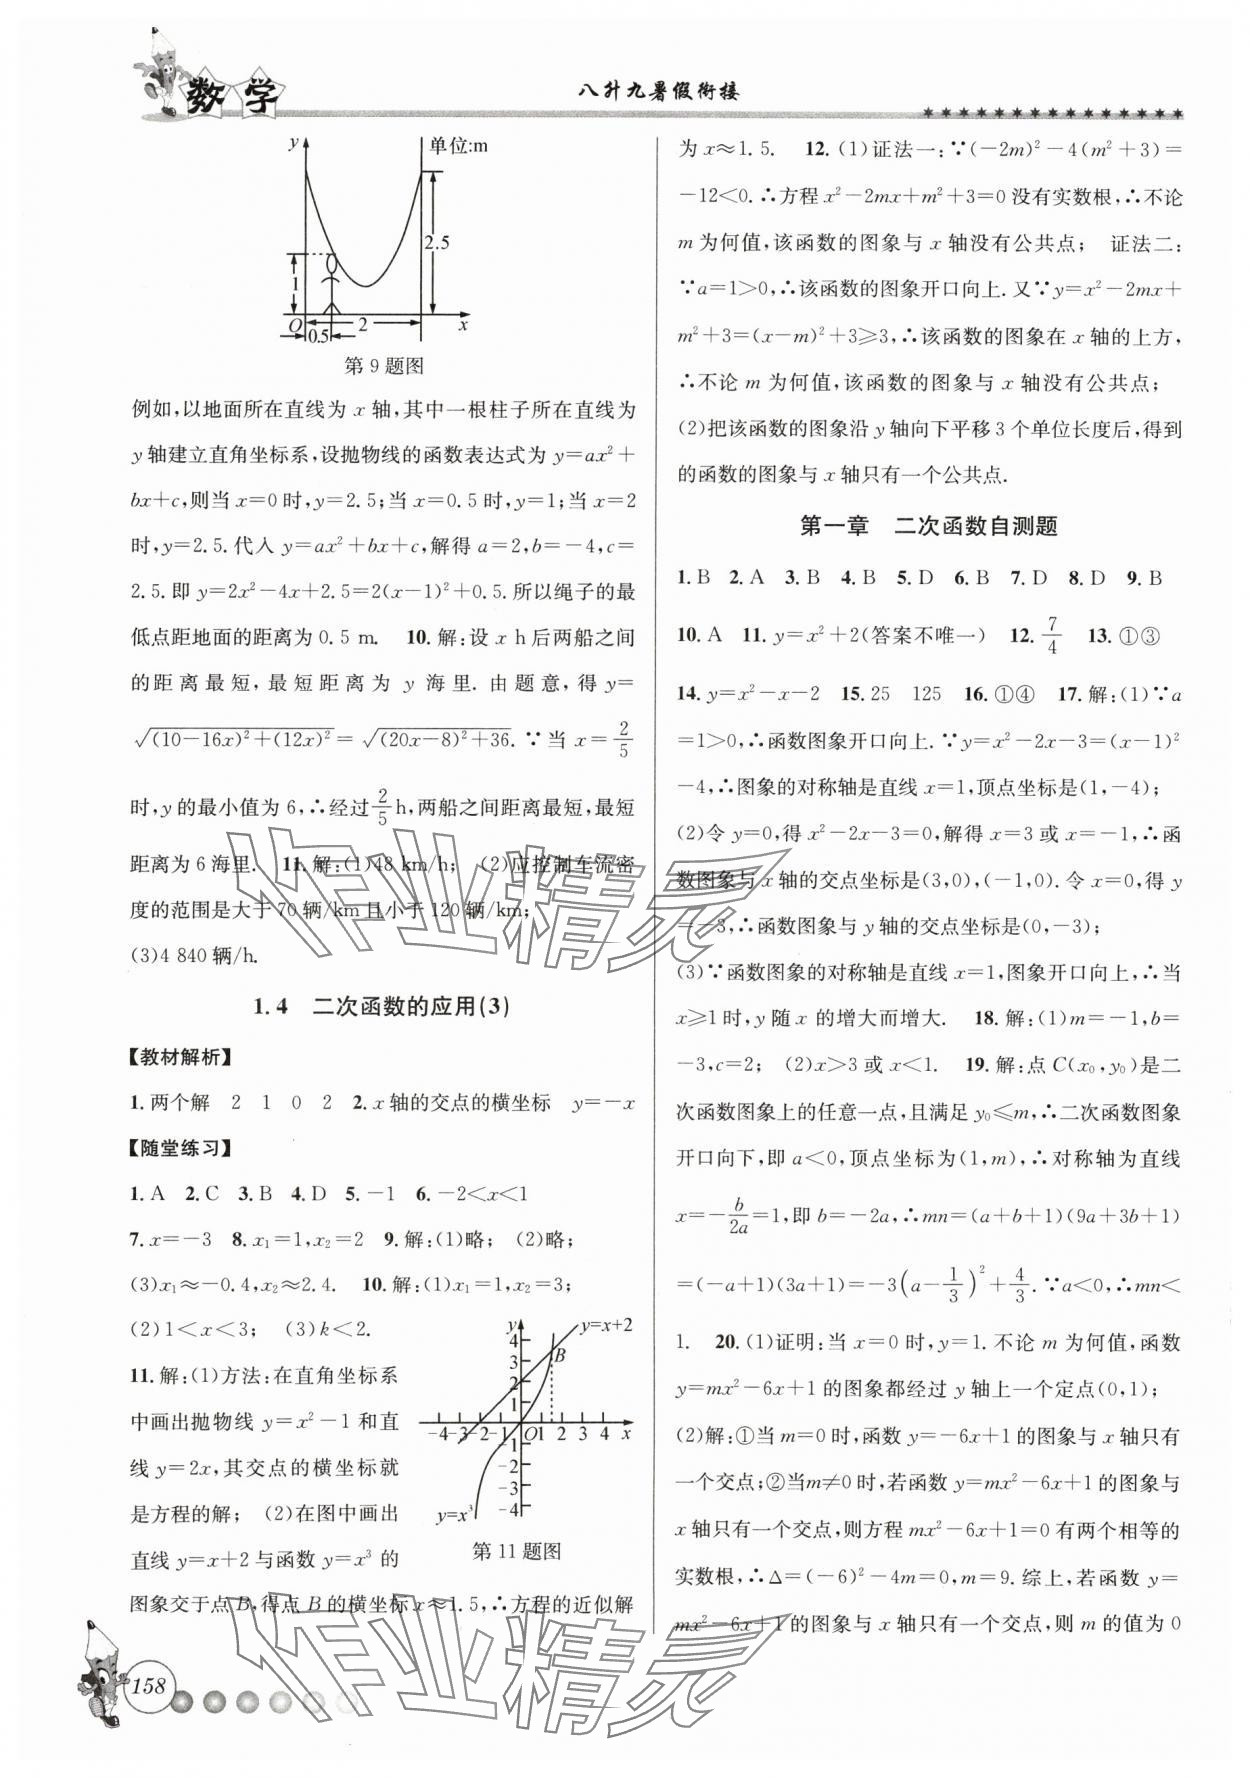 数学
八升九暑假衔接
y
单位:m
2.5
1
O
2
x
0.5
第9题图
例如,以地面所在直线为 x 轴,其中一根柱子所在直线为
y 轴建立直角坐标系,设抛物线的函数表达式为 y=ax²+
bx+c,则当 x=0 时,y=2.5;当 x=0.5 时,y=1;当 x=2
时,y=2.5. 代入 y=ax²+bx+c,解得 a=2,b=-4,c=
2.5. 即 y=2x²-4x+2.5=2(x-1)²+0.5. 所以绳子的最
低点距地面的距离为 0.5 m. 10. 解:设 x h 后两船之间
的距离最短,最短距离为 y 海里. 由题意,得 y=
√((10-16x)²+(12x)²)=√((20x-8)²+36). ∵当 x=2/5
时,y 的最小值为 6,∴经过2/5h,两船之间距离最短,最短
距离为 6 海里. 11. 解:(1)48 km/h; (2)应控制车流密
度的范围是大于 70 辆/km 且小于 120 辆/km;
(3)4 840 辆/h.
1.4 二次函数的应用(3)
【教材解析】
1. 两个解 2 1 0 2 2. x 轴的交点的横坐标 y=-x
【随堂练习】
1. A 2. C 3. B 4. D 5. -1 6. -2<x<1
7. x=-3 8. x₁=1,x₂=2 9. 解:(1)略; (2)略;
(3)x₁≈-0.4,x₂≈2.4. 10. 解:(1)x₁=1,x₂=3;
(2)1<x<3; (3)k<2.
11. 解:(1)方法:在直角坐标系
中画出抛物线 y=x²-1 和直
线 y=2x,其交点的横坐标就
是方程的解; (2)在图中画出
直线 y=x+2 与函数 y=x³ 的
图象交于点 B,得点 B 的横坐标 x≈1.5,∴方程的近似解
y
y=x+2
4
3
B
2
1
-4-3-2-1 O 1 2 3 4 x
-1
-2
-3
-4
y=x³
第11题图
158
为 x≈1.5. 12. (1)证法一:∵(-2m)²-4(m²+3)=
-12<0. ∴方程 x²-2mx+m²+3=0 没有实数根,∴不论
m 为何值,该函数的图象与 x 轴没有公共点; 证法二:
∵a=1>0,∴该函数的图象开口向上. 又∵y=x²-2mx+
m²+3=(x-m)²+3≥3,∴该函数的图象在 x 轴的上方,
∴不论 m 为何值,该函数的图象与 x 轴没有公共点;
(2)把该函数的图象沿 y 轴向下平移 3 个单位长度后,得到
的函数的图象与 x 轴只有一个公共点.
第一章 二次函数自测题
1. B 2. A 3. B 4. B 5. D 6. B 7. D 8. D 9. B
10. A 11. y=x²+2(答案不唯一) 12. 7/4 13. ①③
14. y=x²-x-2 15. 25 125 16. ①④ 17. 解:(1)∵a
=1>0,∴函数图象开口向上. ∵y=x²-2x-3=(x-1)²
-4,∴图象的对称轴是直线 x=1,顶点坐标是(1,-4);
(2)令 y=0,得 x²-2x-3=0,解得 x=3 或 x=-1,∴函
数图象与 x 轴的交点坐标是(3,0),(-1,0). 令 x=0,得 y
=-3,∴函数图象与 y 轴的交点坐标是(0,-3);
(3)∵函数图象的对称轴是直线 x=1,图象开口向上,∴当
x≥1 时,y 随 x 的增大而增大. 18. 解:(1)m=-1,b=
-3,c=2; (2)x>3 或 x<1. 19. 解:点 C(x₀,y₀)是二
次函数图象上的任意一点,且满足 y₀≤m,∴二次函数图象
开口向下,即 a<0,顶点坐标为(1,m),∴对称轴为直线
x=-b/2a=1,即 b=-2a,∴mn=(a+b+1)(9a+3b+1)
=(-a+1)(3a+1)=-3(a-1/3)²+4/3. ∵a<0,∴mn<
1. 20. (1)证明:当 x=0 时,y=1. 不论 m 为何值,函数
y=mx²-6x+1 的图象都经过 y 轴上一个定点(0,1);
(2)解:①当 m=0 时,函数 y=-6x+1 的图象与 x 轴只有
一个交点;②当m≠0 时,若函数 y=mx²-6x+1 的图象与
x 轴只有一个交点,则方程 mx²-6x+1=0 有两个相等的
实数根,∴Δ=(-6)²-4m=0,m=9. 综上,若函数 y=
mx²-6x+1 的图象与 x 轴只有一个交点,则 m 的值为 0
作业精灵
作业精灵